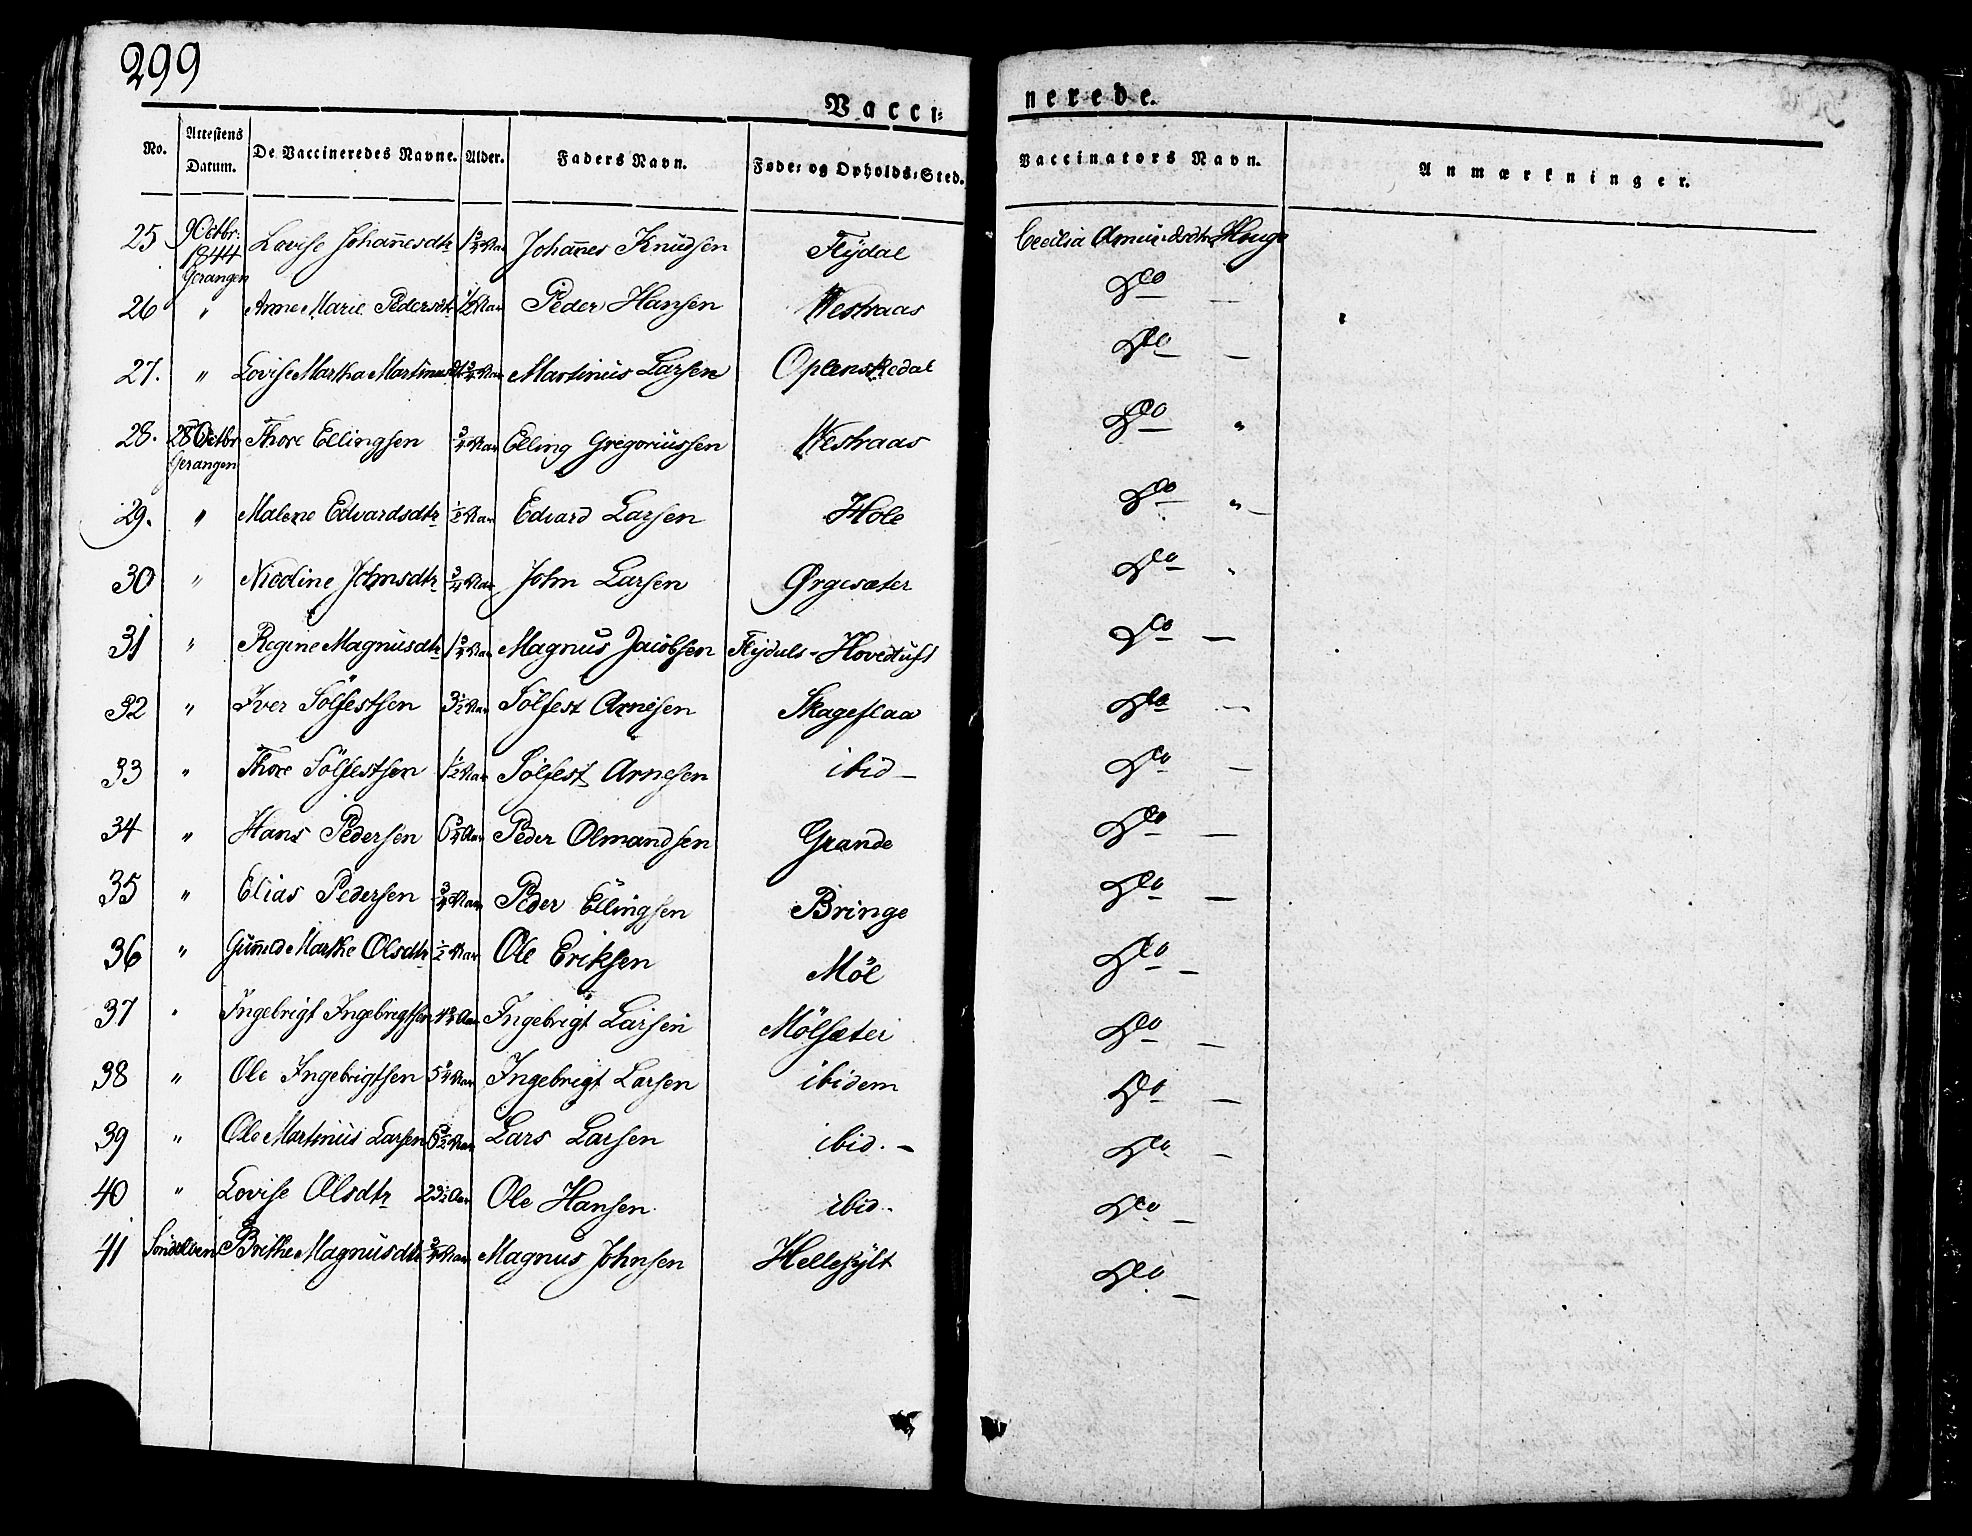 299
Vacci=
nerede.
No. Attestens Datum. De Vaccineredes Navne. Alder. Faders Navn. Føde= og Opholds=Sted. Vaccinators Navn. Anmærkninger.
25 9 Octbr: 1844 Geranger Lovise Johannesdtr Johannes Knudsen Flydal Cecilia Amundsdtr Houge
26 " Anne Marie Pedersdtr 1/2 Aar Peder Hansen Westraas Do —
27. " Lovise Martha Martinusdt Martinus Larsen Oplenskedal Do —
28. 28 Octbr Geranger Thore Ellingsen 3/4 Aar Elling Gregoriussen Westraas Do "
29. " Malene Edvardsdtr 1/2 Aar Edvard Larsen Hole Do " —
30 " Nicoline Johnsdtr 3/4 Aar John Larsen Ørgesæter Do "
31 " Regine Magnusdtr Magnus Jacobsen Flydals-Hovedtuft Do —
32 " Iver Sölfestsen 3 1/2 Aar Sölfest Arnesen Skageflaa Do —
33 " Thore Sölfestsen 1/2 Aar Sölfest Arnesen ibid — Do —
34 " Hans Pedersen Peder Olmandsen Grande Do —
35 " Elias Pedersen 3/4 Aar Peder Ellingsen Bringe Do —
36 " Gunnild Marthe Olsdtr 1/2 Aar Ole Eriksen Möl Do —
37 " Ingebrigt Ingebrigtsen Ingebrigt Larsen Mölsæter Do —
38 " Ole Ingebrigtsen 5 3/4 Aar Ingebrigt Larsen ibidem Do —
39 " Ole Martinus Larsen Lars Larsen ibid. — Do —
40 " Lovise Olsdtr 23 1/2 Aar Ole Hansen ibid.. Do —
41 Sundelven Brithe Magnusdtr 3/4 Aar Magnus Johnsen Hellesylt Do —